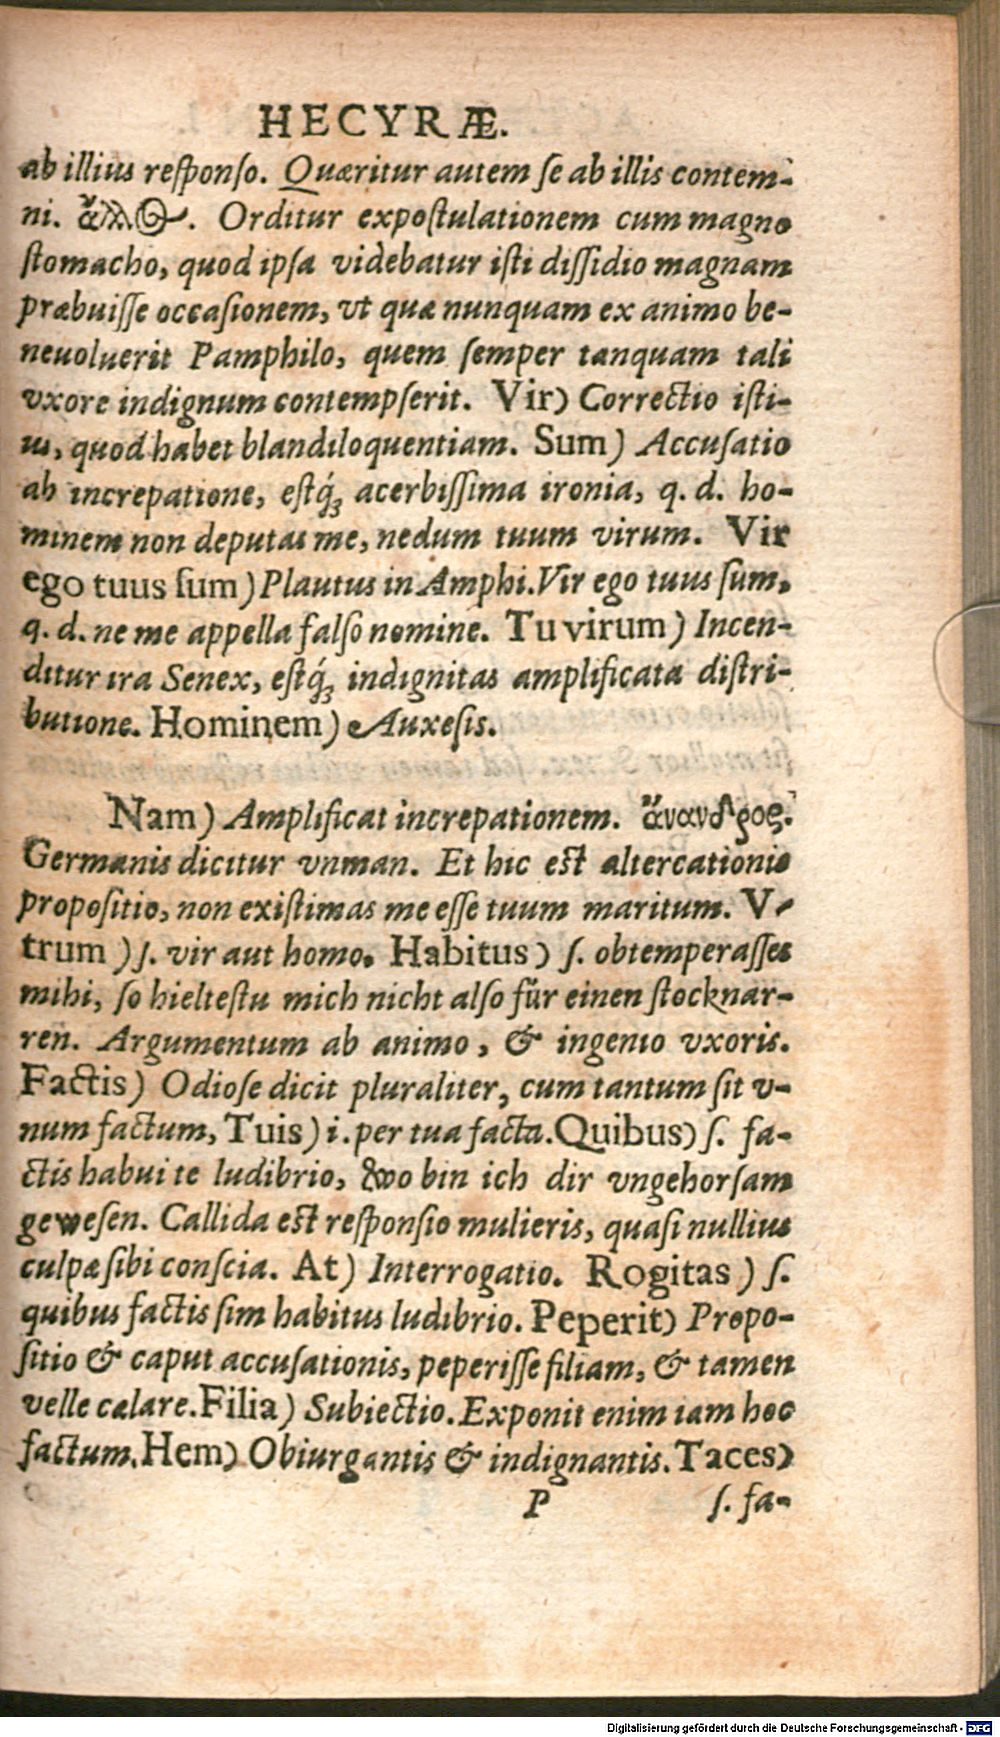 HECYRÆ.
ab illius responso. Quæritur autem se ab illis contem-
ni. ἄλλ. Orditur expostulationem cum magno
stomacho, quod ipsa videbatur isti dissidio magnam
præbuisse occasionem, vt quæ nunquam ex animo be-
neuoluerit Pamphilo, quem semper tanquam tali
vxore indignum contempserit. Vir) Correctio isti-
us, quod habet blandiloquentiam. Sum) Accusatio
ab increpatione, estq́ꝫ acerbissima ironia, q. d. ho-
minem non deputas me, nedum tuum virum. Vir
ego tuus sum) Plautus in Amphi. Vir ego tuus sum,
q. d. ne me appella falso nomine. Tu virum) Incen-
ditur ira Senex, estq́ꝫ indignitas amplificata distri-
butione. Hominem) Auxesis.
Nam) Amplificat increpationem. ἄνανδρος.
Germanis dicitur vnman. Et hic est altercationis
propositio, non existimas me esse tuum maritum. V-
trum) s. vir aut homo. Habitus) s. obtemperasses
mihi, so hieltestu mich nicht also für einen stocknar-
ren. Argumentum ab animo, & ingenio vxoris.
Factis) Odiose dicit pluraliter, cum tantum sit v-
num factum, Tuis) i. per tua facta. Quibus) s. fa-
ctis habui te ludibrio, wo bin ich dir vngehorsam
gewesen. Callida est responsio mulieris, quasi nullius
culpæ sibi conscia. At) Interrogatio. Rogitas) s.
quibus factis sim habitus ludibrio. Peperit) Propo-
sitio & caput accusationis, peperisse filiam, & tamen
velle cælare. Filia) Subiectio. Exponit enim iam hoc
factum. Hem) Obiurgantis & indignantis. Taces)
P s. fa-
Digitalisierung gefördert durch die Deutsche Forschungsgemeinschaft - DFG